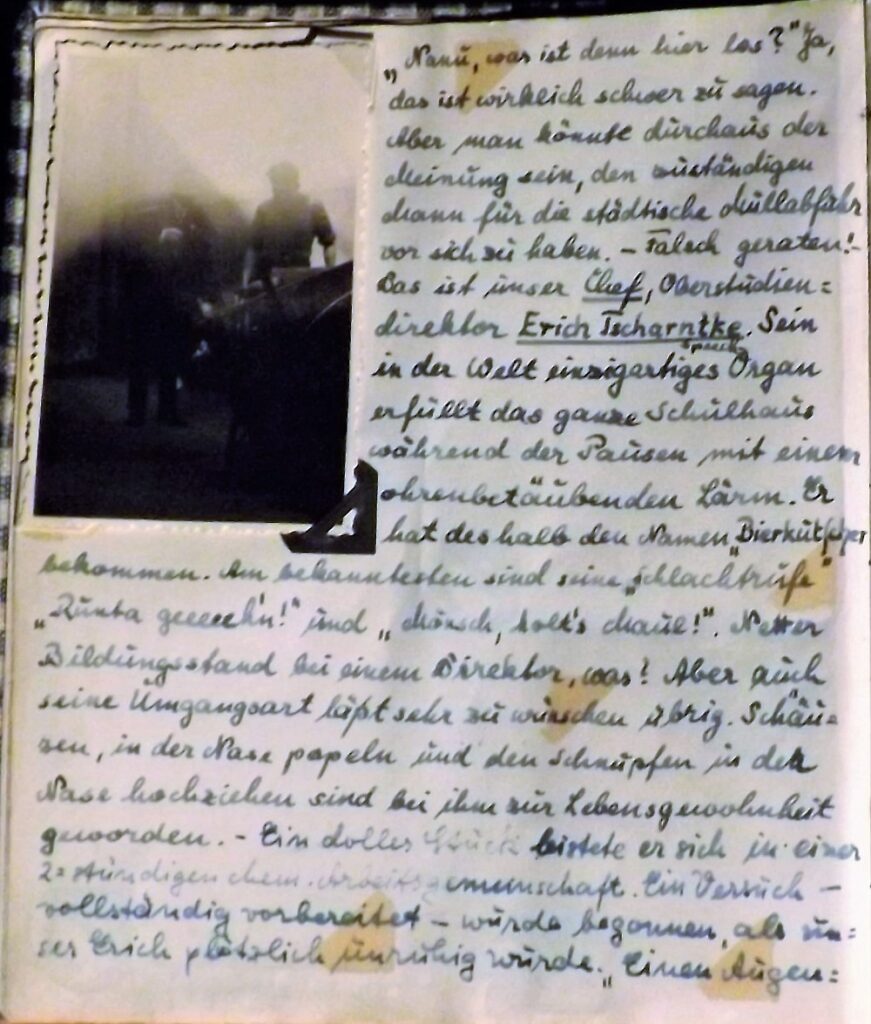 „Nanu, was ist denn hier los?" Ja,
das ist wirklich schwer zu sagen.
Aber man könnte durchaus der
Meinung sein, den zuständigen
Mann für die städtische Müllabfuhr
vor sich zu haben. – Falsch geraten! –
Das ist unser Chef, Oberstudien=
direktor Erich Tscharntke. Sein
in der Welt einzigartiges Sprech
Organ
erfüllt das ganze Schulhaus
während der Pausen mit einem
ohrenbetäubenden Lärm. Er
hat deshalb den Namen „Bierkutscher
bekommen. Am bekanntesten sind seine „Schlachtrufe"
„Runta geeeeh'n!" und „Mönsch, holt's Maul!". Netter
Bildungsstand bei einem Direktor, was? Aber auch
seine Umgangsart läßt sehr zu wünschen übrig. Schäu=
zen, in der Nase popeln und den Schnupfen in der
Nase hochziehen sind bei ihm zur Lebensgewohnheit
geworden. – Ein dolles Stück leistete er sich in einer
2=stündigen chem. Arbeitsgemeinschaft. Ein Versuch –
vollständig vorbereitet – wurde begonnen, als un=
ser Erich plötzlich unruhig wurde. „Einen Augen=